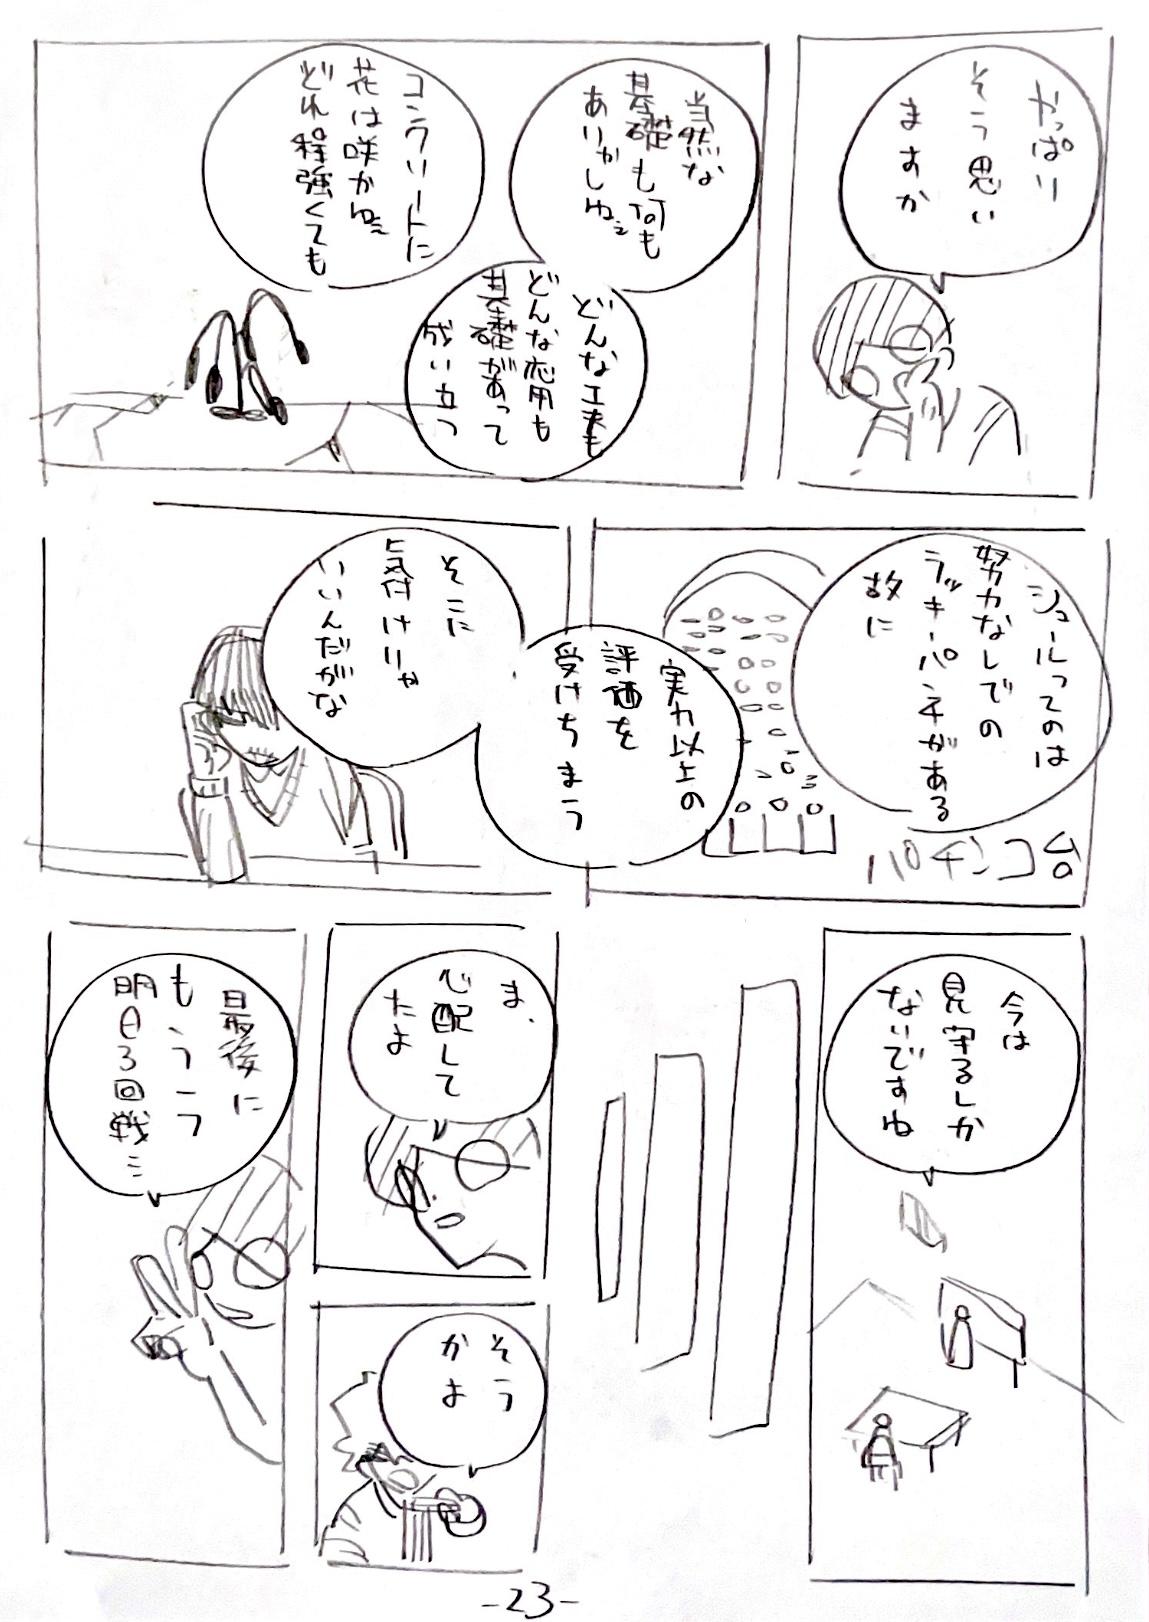 やっぱり
そう思い
ますか
当然な
基礎も何も
ありゃしねぇ
どんな工夫も
どんな応用も
基礎があって
成り立つ
コンクリートに
花は咲かねぇ
どれ程強くても
シュールってのは
努力なしでの
ラッキーパンチがある
故に
パチンコ台
実力以上の
評価を
受けちまう
そこに
気付けりゃ
いいんだがな
今は
見守るしか
ないですね
ま、
心配して
たよ
そう
かよ
最後に
もう一つ
明日3回戦…
-23-